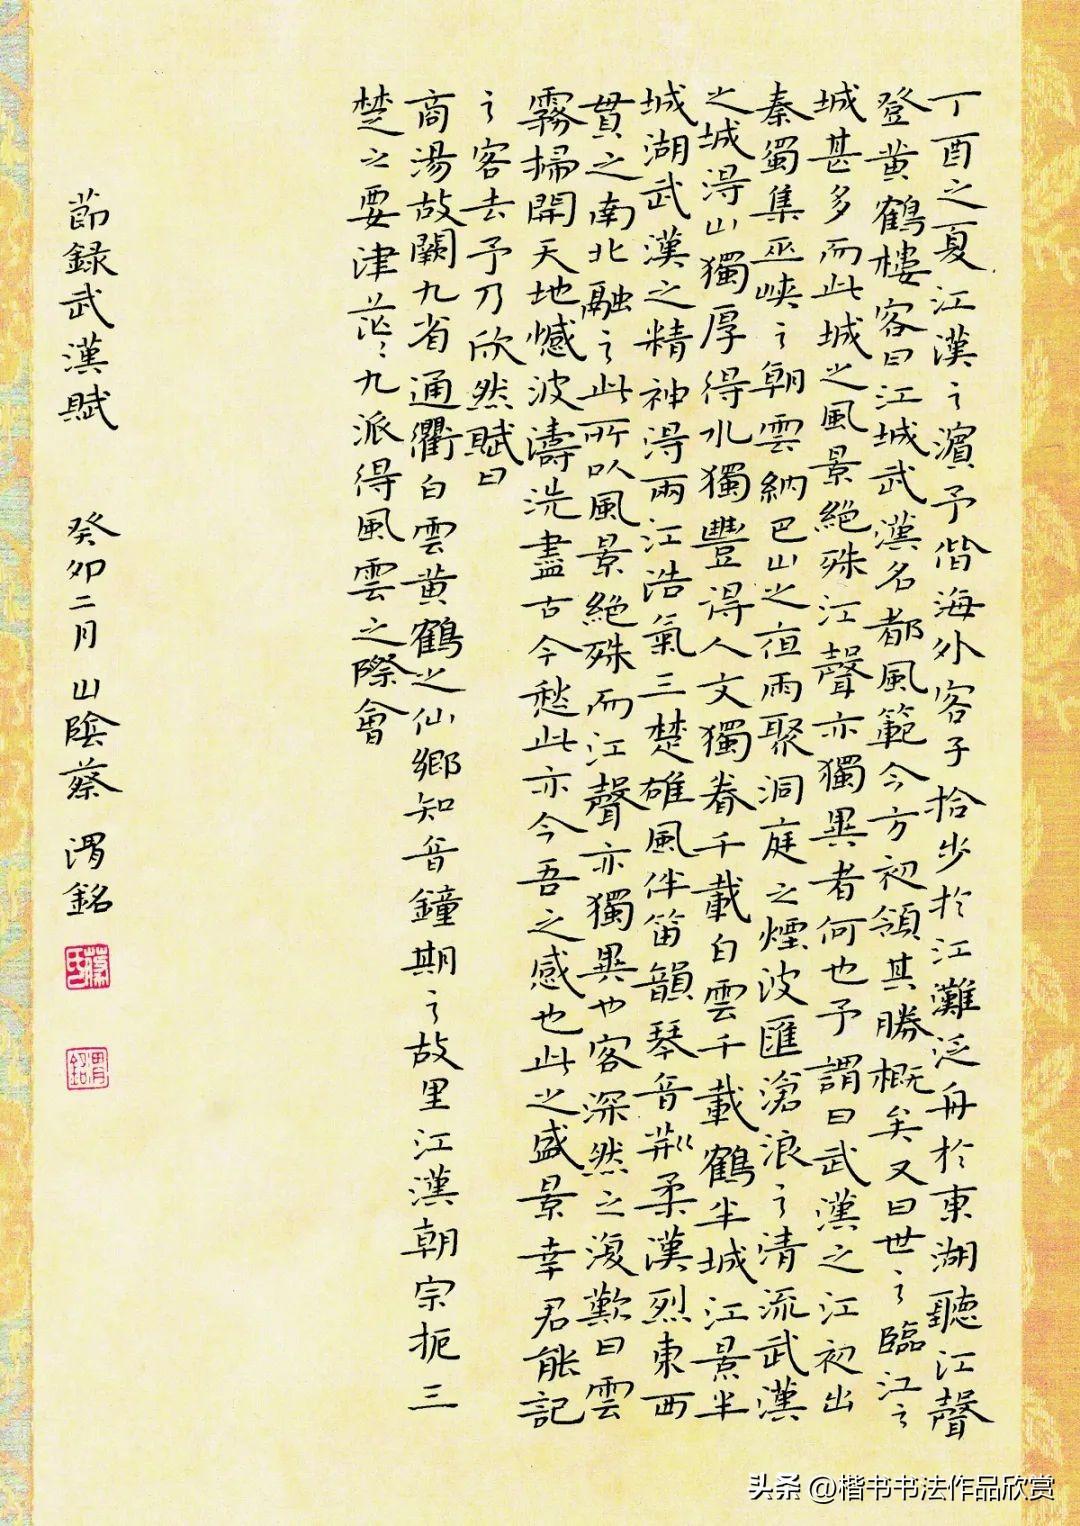 丁酉之夏江漢之濱予偕海外客子拾步於江灘泛舟於東湖聽江聲
登黄鶴樓客曰江城武漢名都風範今方初領其勝概矣又曰世之臨江之
城甚多而此城之風景絕殊江聲亦獨異者何也予謂曰武漢之江初出
秦蜀集巫峽之朝雲納巴山之夜雨聚洞庭之煙波匯滄浪之清流武漢
之城得山獨厚得水獨豐得人文獨眷千載白雲千載鶴半城江景半
城湖武漢之精神得兩江浩氣三楚雄風伴笛韻琴音荆柔漢烈東西
貫之南北融之此所以風景絕殊而江聲亦獨異也客深然之復歎曰雲
霧掃開天地憾波濤洗盡古今愁此亦今吾之感也此之盛景幸君能記
之客去予乃欣然賦曰
商湯故闕九省通衢白雲黄鶴之仙鄉知音鐘期之故里江漢朝宗扼三
楚之要津茫茫九派得風雲之際會
節録武漢賦 癸卯二月山陰蔡渭銘
蔡氏
渭銘
头条 @楷书书法作品欣赏